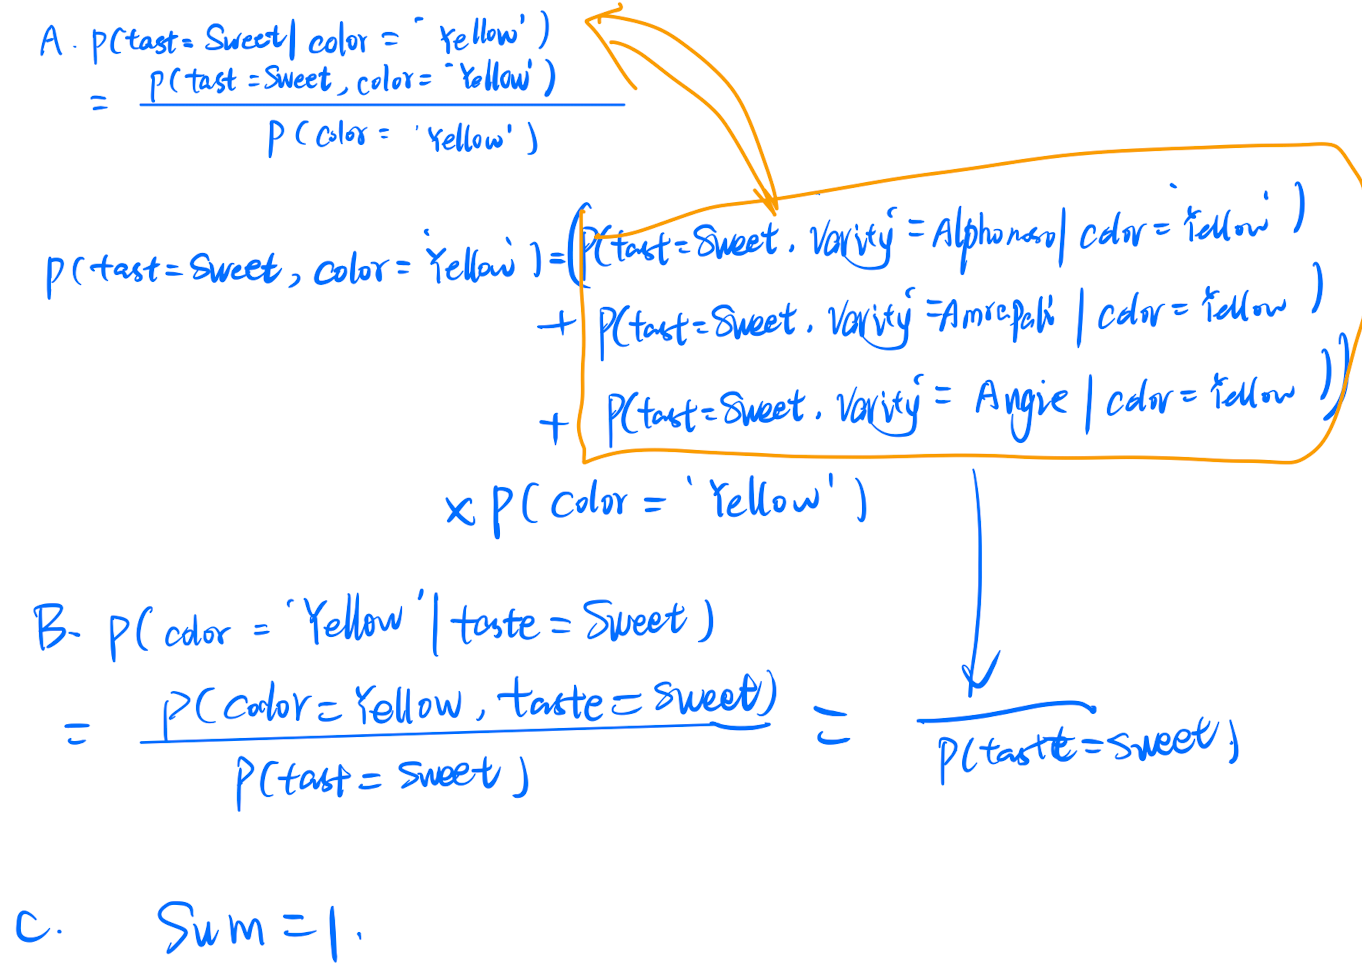 A. P(tast=Sweet| color = 'Yellow')
= P(tast=Sweet, color= 'Yellow')
P(color = 'Yellow')
P(tast=Sweet, color='Yellow')=(P(tast=Sweet. Varity=Alphonso| color='Yellow')
+ P(tast=Sweet. Varity=Amrapali | color = Yellow)
+ P(tast=Sweet. Varity= Angie | color= Yellow))
x P(color = 'Yellow')
B. P(color = 'Yellow' | taste = Sweet)
= P(color=Yellow, taste=sweet) =
P(tast= sweet) P(taste=sweet)
C. Sum=1.